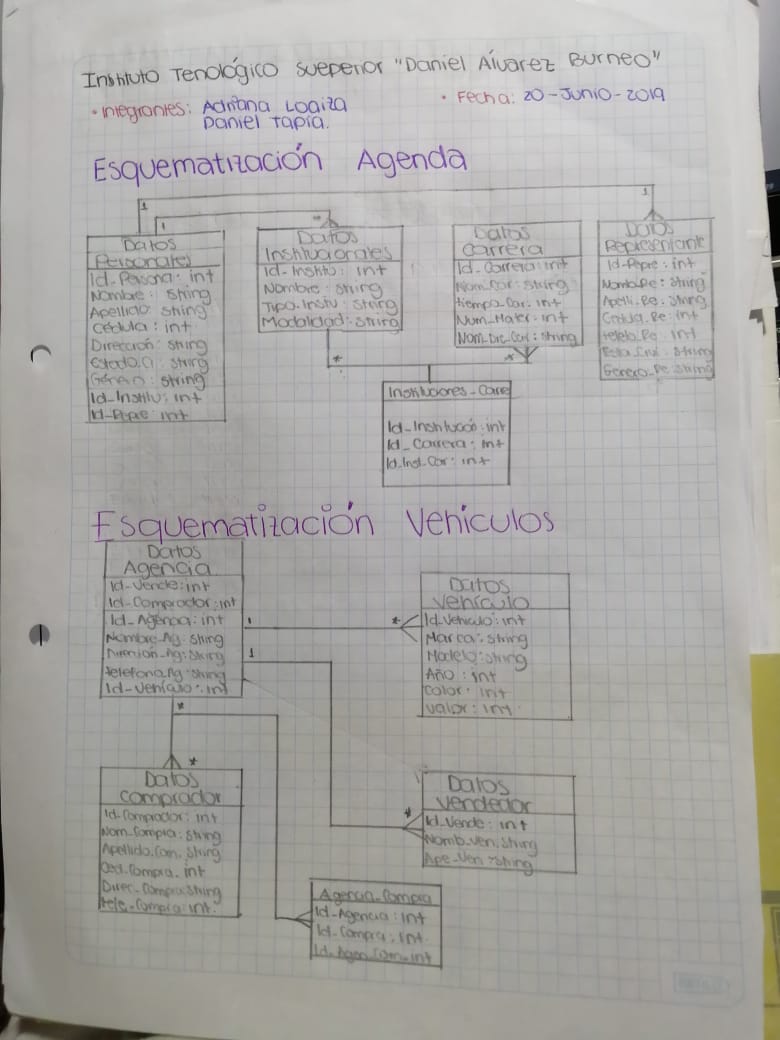 Instituto Tenológico Sueperior "Daniel Álvarez Burneo"
• Integrantes: Adriana Loaiza
Daniel Tapia.
• Fecha: 20-Junio-2019
Esquematización Agenda
1
1
1
Datos
Personales
Id-Persona: int
Nombre: string
Apellido: string
Cédula: int
Dirección: string
Estado.Ci: string
Género: string
Id-Institu: int
Id-Repre: int
Datos
Institucionales
Id-Institu: int
Nombre: string
Tipo.Institu: string
Modalidad: string
*
Datos
Carrera
Id.Carrera: int
Nom_Car: string
tiempo_Car: int
Num_Mater: int
Nom_Dic_Car: string
*
Datos
Representante
Id-Repre: int
Nomb.Re: string
Apelli.Re: string
Cedula.Re: int
telefo.Re: int
Esta_Civi: string
Genero_Re: string
Instituciones-Carre
Id_Institución: int
Id_Carrera: int
Id_Inst_Car: int
Esquematización Vehículos
Datos
Agencia
Id-Vende: int
Id-Comprador: int
Id_Agencia: int
Nombre_Ag: string
Dirección_Ag: string
telefono.Ag: string
Id-Vehículo: int
1
1
*
*
Datos
Vehículo
Id.Vehiculo: int
Marca: string
Modelo: string
Año: int
Color: int
Valor: int
*
Datos
Comprador
Id-Comprador: int
Nom_Compra: string
Apellido.Com: string
Ced_Compra: int
Direc_Compra: string
tele_Compra: int
Datos
Vendedor
Id_Vende: int
Nomb.Ven: string
Ape_Ven: string
*
Agencia_Compra
Id_Agencia: int
Id_Compra: int
Id_Agen_Com: int